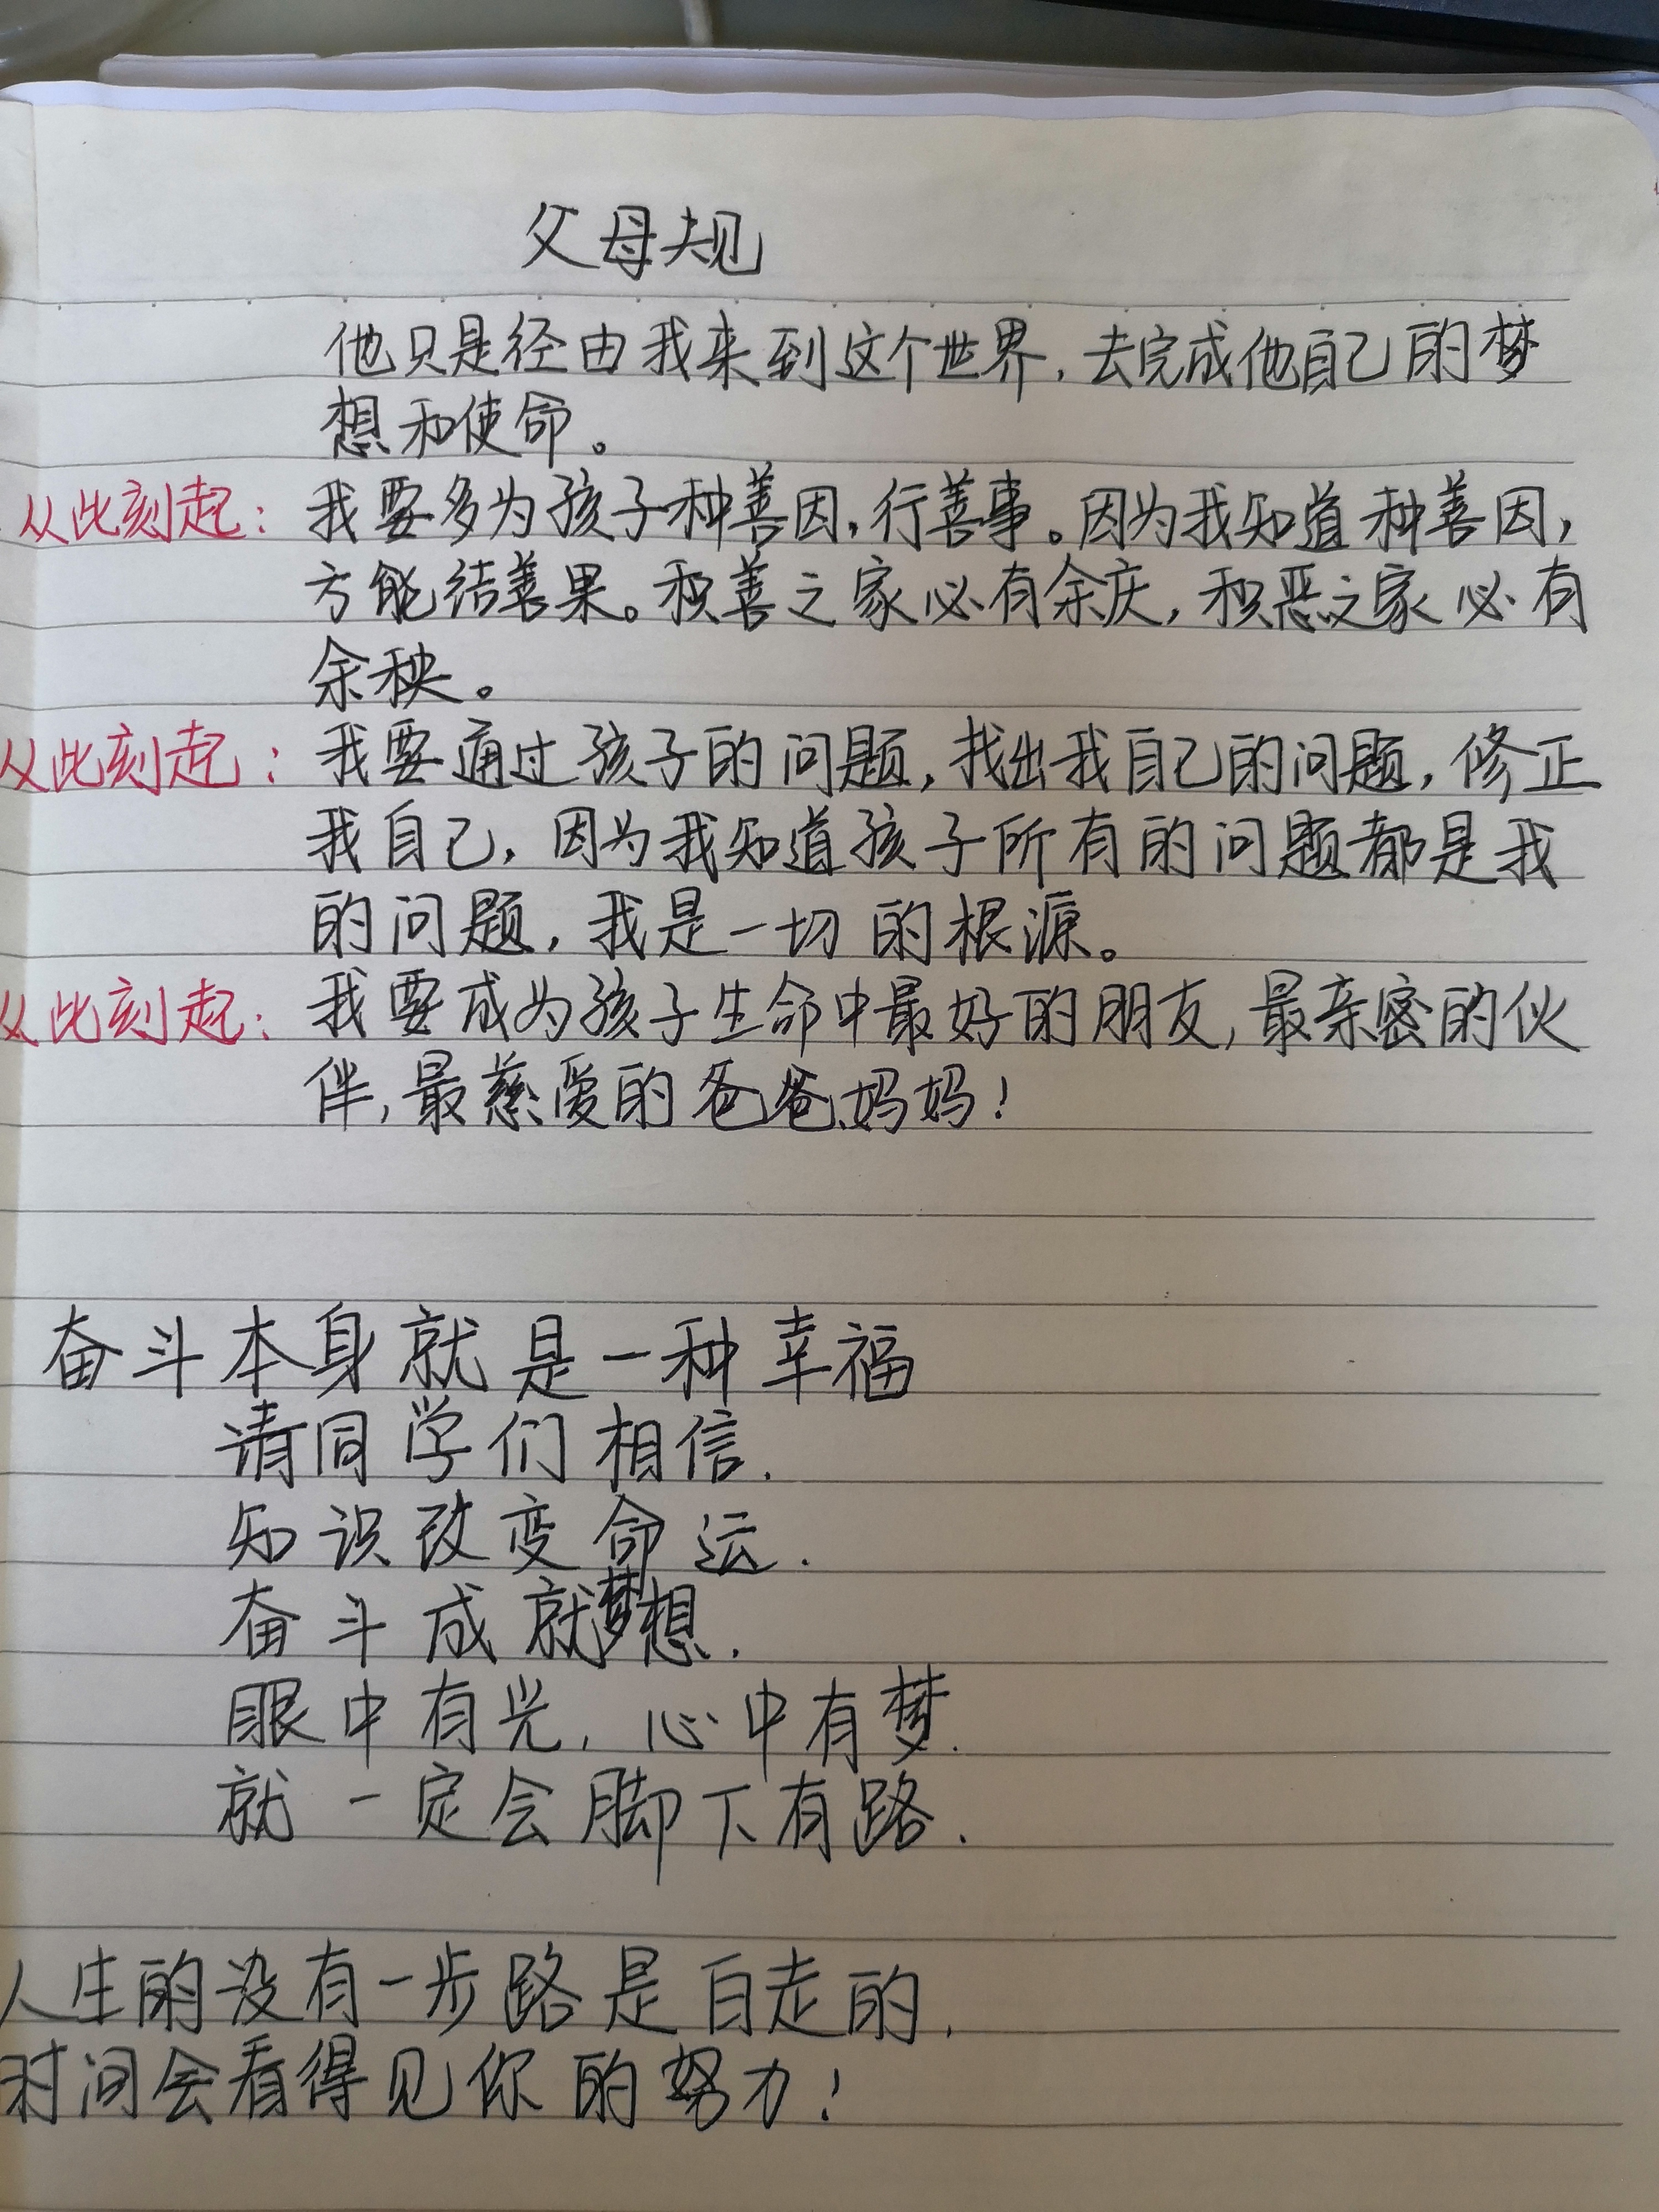 父母规
他只是经由我来到这个世界,去完成他自己的梦
想和使命。
从此刻起:我要多为孩子种善因,行善事。因为我知道种善因,
方能结善果。积善之家必有余庆,积恶之家必有
余秧。
从此刻起:我要通过孩子的问题,找出我自己的问题,修正
我自己,因为我知道孩子所有的问题都是我
的问题,我是一切的根源。
从此刻起:我要成为孩子生命中最好的朋友,最亲密的伙
伴,最慈爱的爸爸、妈妈!
奋斗本身就是一种幸福
请同学们相信.
知识改变命运.
奋斗成就梦想.
眼中有光,心中有梦.
就一定会脚下有路.
人生的没有一步路是白走的.
时间会看得见你的努力!